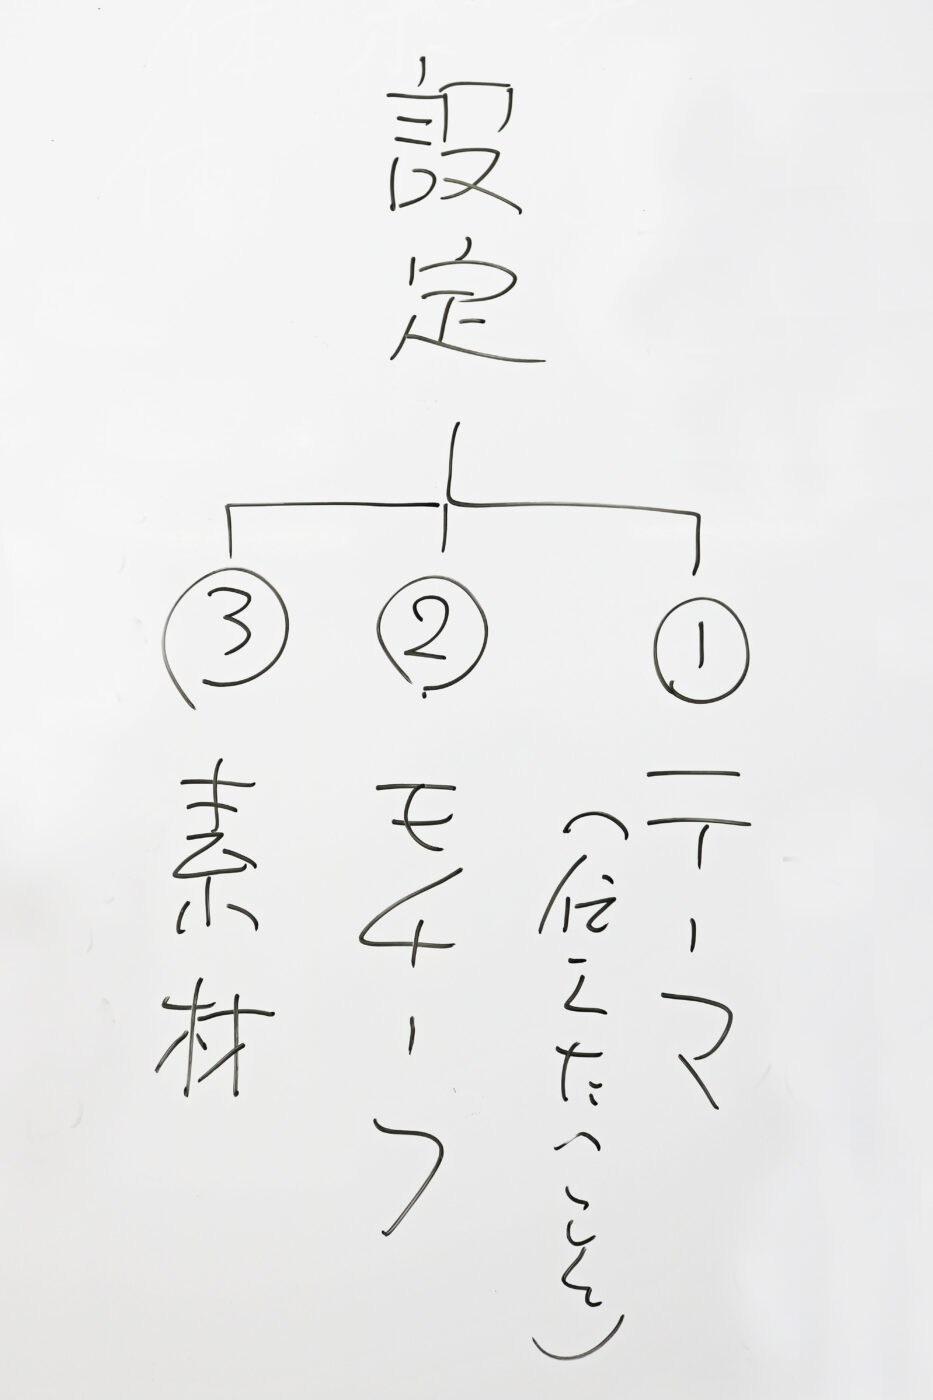 設定
①
テーマ
(伝えたいこと)
②
モチーフ
③
素材